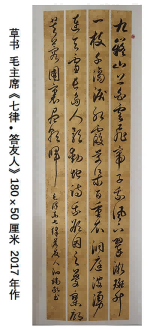 九嶷山上白云飞帝子乘风下翠微斑竹
一枝千滴泪红霞万朵百重衣洞庭波涌
连天雪长岛人歌动地诗我欲因之梦寥廓
芙蓉国里尽朝晖
草书 毛主席《七律·答友人》180×50厘米 2017年作